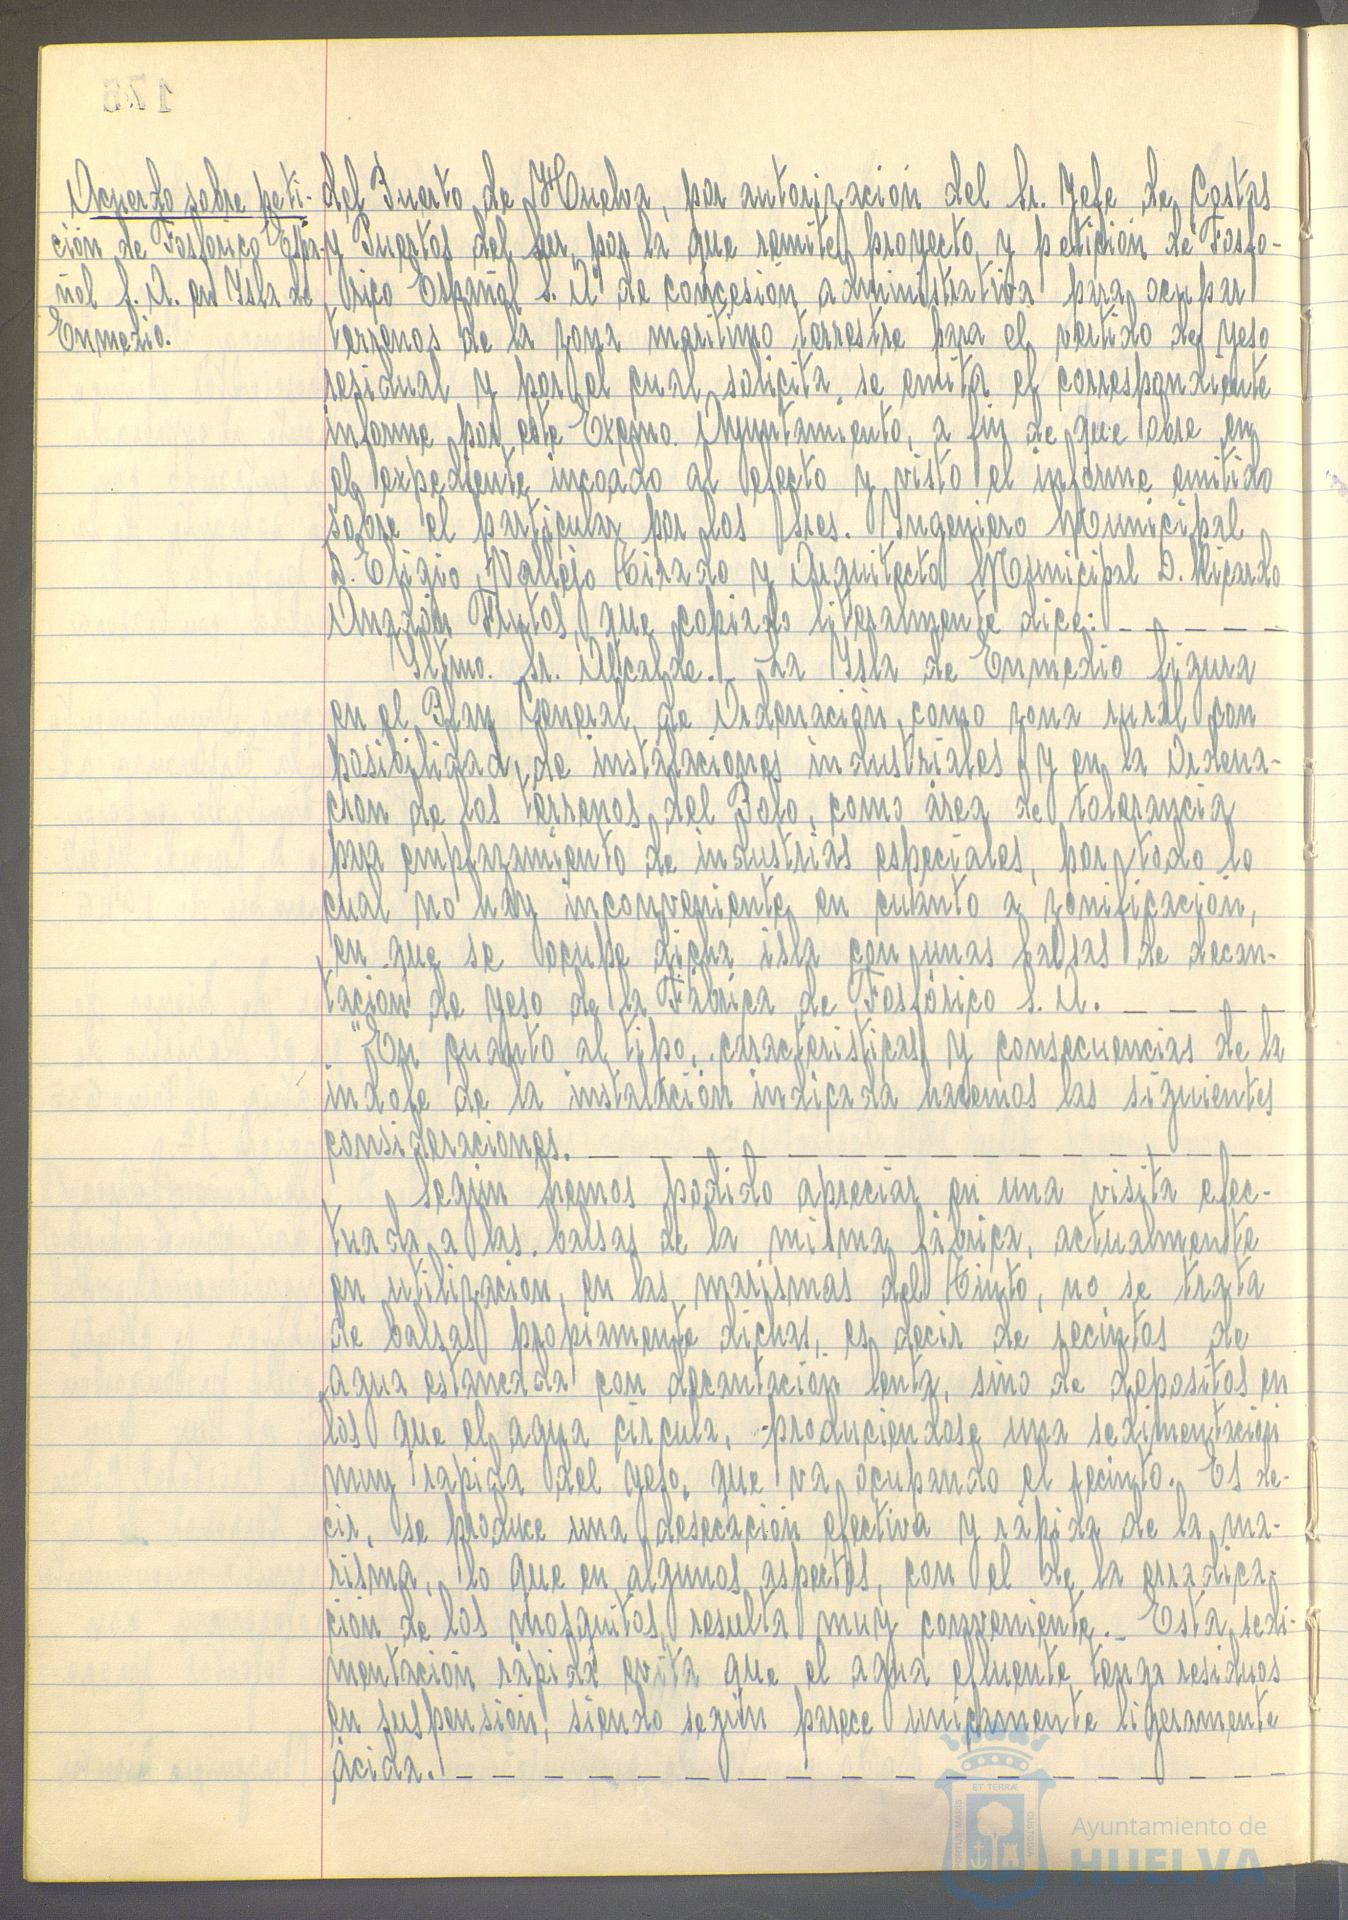 Acuerdo sobre peti-
ción de Fosforico Espa-
ñol S. A. en Isla de
Enmedio.
del Puerto de Huelva, por autorización del Sr. Jefe de Costas
y Puertos del Sur por la que remite proyecto y petición de "Fosfo-
rico Español S. A" de concesión administrativa para ocupar
terrenos de la zona maritimo terrestre para el vertido de yeso
residual y por el cual solicita se emita el correspondiente
informe por este Excmo. Ayuntamiento, a fin de que obre en
el expediente incoado al efecto y visto el informe emitido
sobre el particular por los Sres. Ingeniero Municipal
D. Eligio Vallejo Tirado y Arquitecto Municipal D. Ricardo
Anadón Frutos que copiado literalmente dice: - - - -
Iltmo. Sr. Alcalde. La Isla de Enmedio figura
en el Plan General de Ordenación, como zona rural con
posibilidad, de instalaciones industriales y en la Ordena-
cion de los terrenos del Polo, como área de tolerancia
para emplazamiento de industrias especiales, por todo lo
cual no hay inconveniente en cuanto a zonificación,
en que se ocupe dicha isla con unas balsas de decan-
tación de yeso de la Fábrica de Fosfórico S. A. - - - -
"En cuanto al tipo, caracteristicas y consecuencias de la
indole de la instalación indicada hacemos las siguientes
consideraciones. - - - - - - - - - - - - - - - -
Según hemos podido apreciar en una visita efec-
tuada a las balsas de la misma fábrica, actualmente
en utilización, en las marismas del Tinto, no se trata
de balsas propiamente dichas, es decir de recintos de
agua estancada con decantación lenta, sino de depositos en
los que el agua circula, produciendose una sedimentación
muy rapida del yeso, que va ocupando el recinto. Es de-
cir, se produce una desecación efectiva y rápida de la ma-
risma, lo que en algunos aspectos, con el de la erradica-
ción de los mosquitos, resulta muy conveniente.- Esta sedi-
mentación rápida evita que el agua efluente tenga residuos
en suspensión, siendo según parece unicamente ligeramente
ácida. - - - - - - - - - - - - - - - - - -
PORTUS MARIS
ET TERRÆ
CUSTODIA
Ayuntamiento de
HUELVA